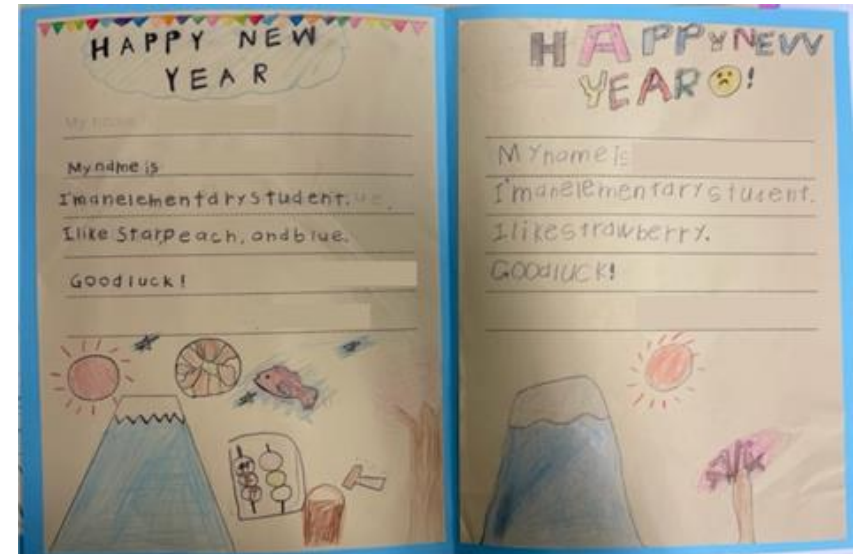 HAPPY NEW
YEAR
My name
My name is
I'm an elementary student.
I like Star, peach, and blue.
Good luck!
HAPPY NEW
YEAR !
My name is
I'm an elementary student.
I like strawberry.
GOOd luck!